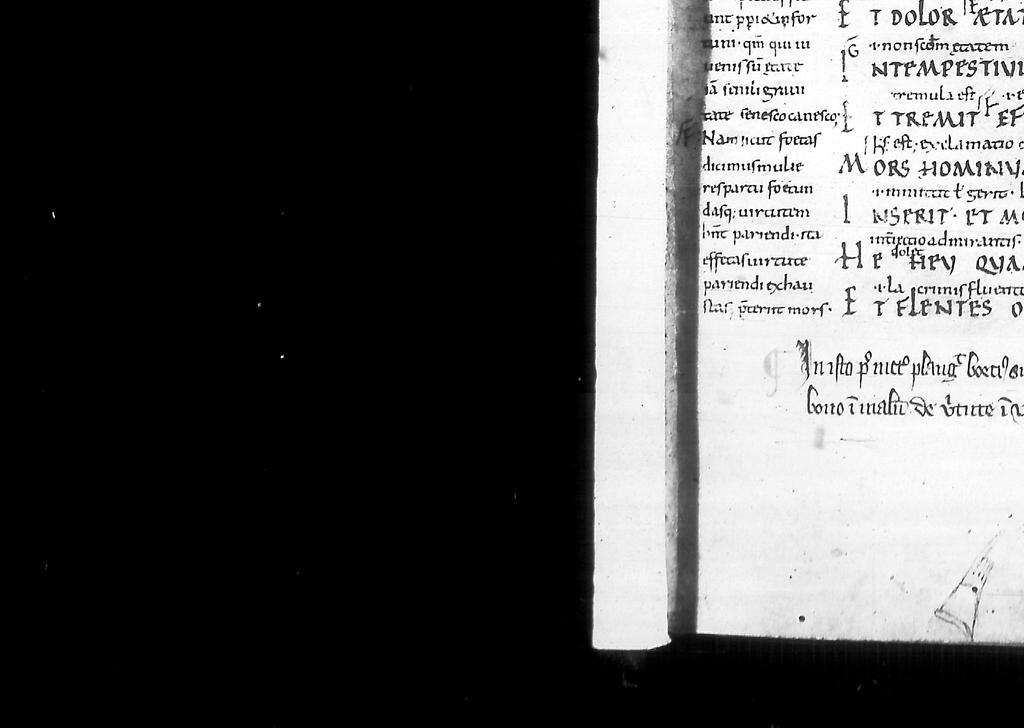 unt ꝓpi
tum· qm̄ qui iu
uenis sū ętate
iā senili gͣuui
tate senesco canesco;
Nam sicut foetas
dicimus mulie
res partu foetun
das q; uirtutem
hn̄t pariendi· ita
effetas uirtute
pariendi exhau
stas; p̄terit mors·
E T DOLOR ÆTAT
·i· non sc̄dm ętatem
INTEMPESTIVI
tremula est
E T TREMIT EF
est; exclamatio
MORS HOMINV
·i· inmittit ł gerit·
INSERIT· ET MO
int̄iectio admirantis·
dolet
HE HEV QVA
·i· la crimis fluent
E T FLENTES O
In isto p̓ met
bono ī malū de v̓tute ī